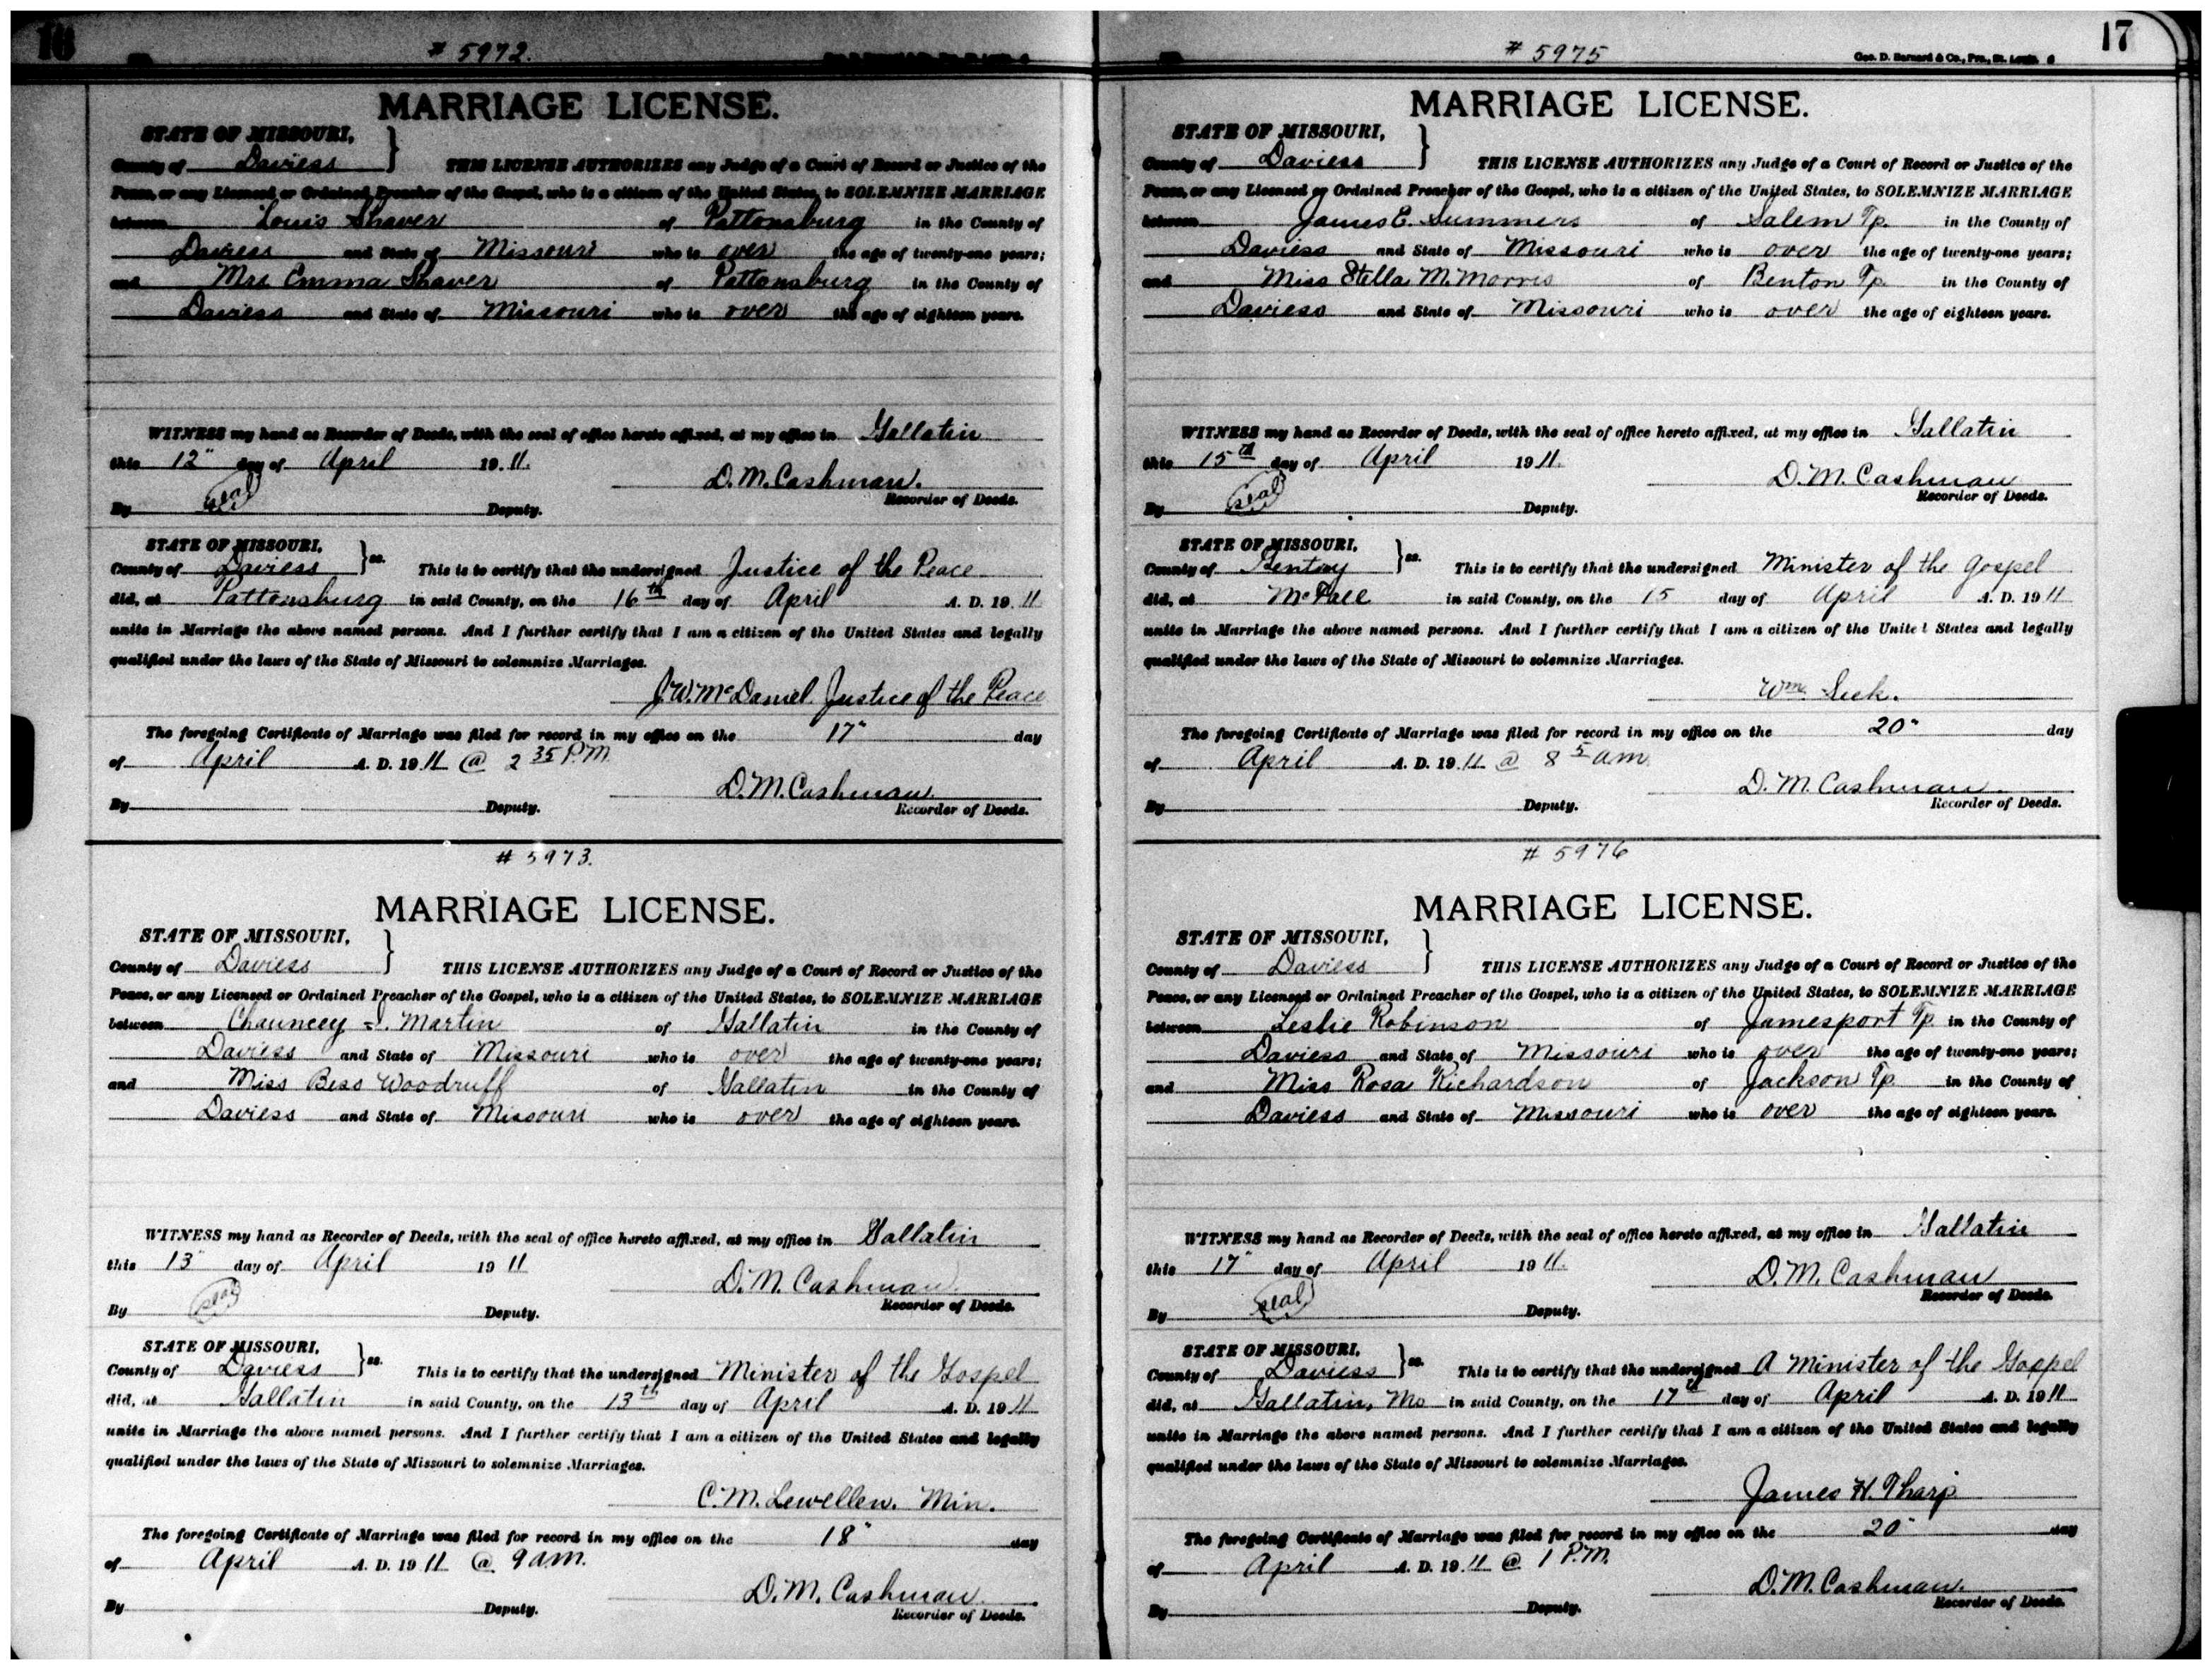 16
# 5972.
MARRIAGE LICENSE.
STATE OF MISSOURI,
County of Daviess } THIS LICENSE AUTHORIZES any Judge of a Court of Record or Justice of the
Peace, or any Licensed or Ordained Preacher of the Gospel, who is a citizen of the United States, to SOLEMNIZE MARRIAGE
between Louis Shaver of Pattonsburg in the County of
Daviess and State of Missouri who is over the age of twenty-one years;
and Mrs Emma Shaver of Pattonsburg in the County of
Daviess and State of Missouri who is over the age of eighteen years.
WITNESS my hand as Recorder of Deeds, with the seal of office hereto affixed, at my office in Gallatin
this 12" day of April 19 11.
D. M. Cashman.
Recorder of Deeds.
By seal Deputy.
STATE OF MISSOURI,
County of Daviess } ss. This is to certify that the undersigned Justice of the Peace
did, at Pattonsburg in said County, on the 16th day of April A. D. 19 11
unite in Marriage the above named persons. And I further certify that I am a citizen of the United States and legally
qualified under the laws of the State of Missouri to solemnize Marriages.
J. W. McDaniel, Justice of the Peace
The foregoing Certificate of Marriage was filed for record in my office on the 17" day
of April A. D. 19 11 @ 2 35 P.M.
D. M. Cashman.
By Deputy. Recorder of Deeds.
# 5973.
MARRIAGE LICENSE.
STATE OF MISSOURI,
County of Daviess } THIS LICENSE AUTHORIZES any Judge of a Court of Record or Justice of the
Peace, or any Licensed or Ordained Preacher of the Gospel, who is a citizen of the United States, to SOLEMNIZE MARRIAGE
between Chauncey Martin of Gallatin in the County of
Daviess and State of Missouri who is over the age of twenty-one years;
and Miss Bess Woodruff of Gallatin in the County of
Daviess and State of Missouri who is over the age of eighteen years.
WITNESS my hand as Recorder of Deeds, with the seal of office hereto affixed, at my office in Gallatin
this 13" day of April 19 11
D. M. Cashman.
Recorder of Deeds.
By seal Deputy.
STATE OF MISSOURI,
County of Daviess } ss. This is to certify that the undersigned Minister of the Gospel
did, at Gallatin in said County, on the 13th day of April A. D. 19 11
unite in Marriage the above named persons. And I further certify that I am a citizen of the United States and legally
qualified under the laws of the State of Missouri to solemnize Marriages.
C. M. Lewellen. Min.
The foregoing Certificate of Marriage was filed for record in my office on the 18" day
of April A. D. 19 11 @ 9 am.
D. M. Cashman.
By Deputy. Recorder of Deeds.
17
# 5975
Geo. D. Barnard & Co., Pro., St. Louis. 6
MARRIAGE LICENSE.
STATE OF MISSOURI,
County of Daviess } THIS LICENSE AUTHORIZES any Judge of a Court of Record or Justice of the
Peace, or any Licensed or Ordained Preacher of the Gospel, who is a citizen of the United States, to SOLEMNIZE MARRIAGE
between James E. Summers of Salem Tp. in the County of
Daviess and State of Missouri who is over the age of twenty-one years;
and Miss Stella M. Morris of Benton Tp. in the County of
Daviess and State of Missouri who is over the age of eighteen years.
WITNESS my hand as Recorder of Deeds, with the seal of office hereto affixed, at my office in Gallatin
this 15th day of April 19 11.
D. M. Cashman
Recorder of Deeds.
By seal Deputy.
STATE OF MISSOURI,
County of Gentry } ss. This is to certify that the undersigned Minister of the Gospel
did, at McFall in said County, on the 15 day of April A. D. 19 11
unite in Marriage the above named persons. And I further certify that I am a citizen of the United States and legally
qualified under the laws of the State of Missouri to solemnize Marriages.
Wm.
The foregoing Certificate of Marriage was filed for record in my office on the 20" day
of April A. D. 19 11 @ 8 5 am.
D. M. Cashman.
By Deputy. Recorder of Deeds.
# 5976
MARRIAGE LICENSE.
STATE OF MISSOURI,
County of Daviess } THIS LICENSE AUTHORIZES any Judge of a Court of Record or Justice of the
Peace, or any Licensed or Ordained Preacher of the Gospel, who is a citizen of the United States, to SOLEMNIZE MARRIAGE
between Leslie Robinson of Jamesport Tp. in the County of
Daviess and State of Missouri who is over the age of twenty-one years;
and Miss Rosa Richardson of Jackson Tp. in the County of
Daviess and State of Missouri who is over the age of eighteen years.
WITNESS my hand as Recorder of Deeds, with the seal of office hereto affixed, at my office in Gallatin
this 17" day of April 19 11.
D. M. Cashman
Recorder of Deeds.
By seal Deputy.
STATE OF MISSOURI,
County of Daviess } ss. This is to certify that the undersigned A Minister of the Gospel
did, at Gallatin, Mo in said County, on the 17th day of April A. D. 19 11
unite in Marriage the above named persons. And I further certify that I am a citizen of the United States and legally
qualified under the laws of the State of Missouri to solemnize Marriages.
James H. Tharp
The foregoing Certificate of Marriage was filed for record in my office on the 20" day
of April A. D. 19 11 @ 1 P.M.
D. M. Cashman.
By Deputy. Recorder of Deeds.